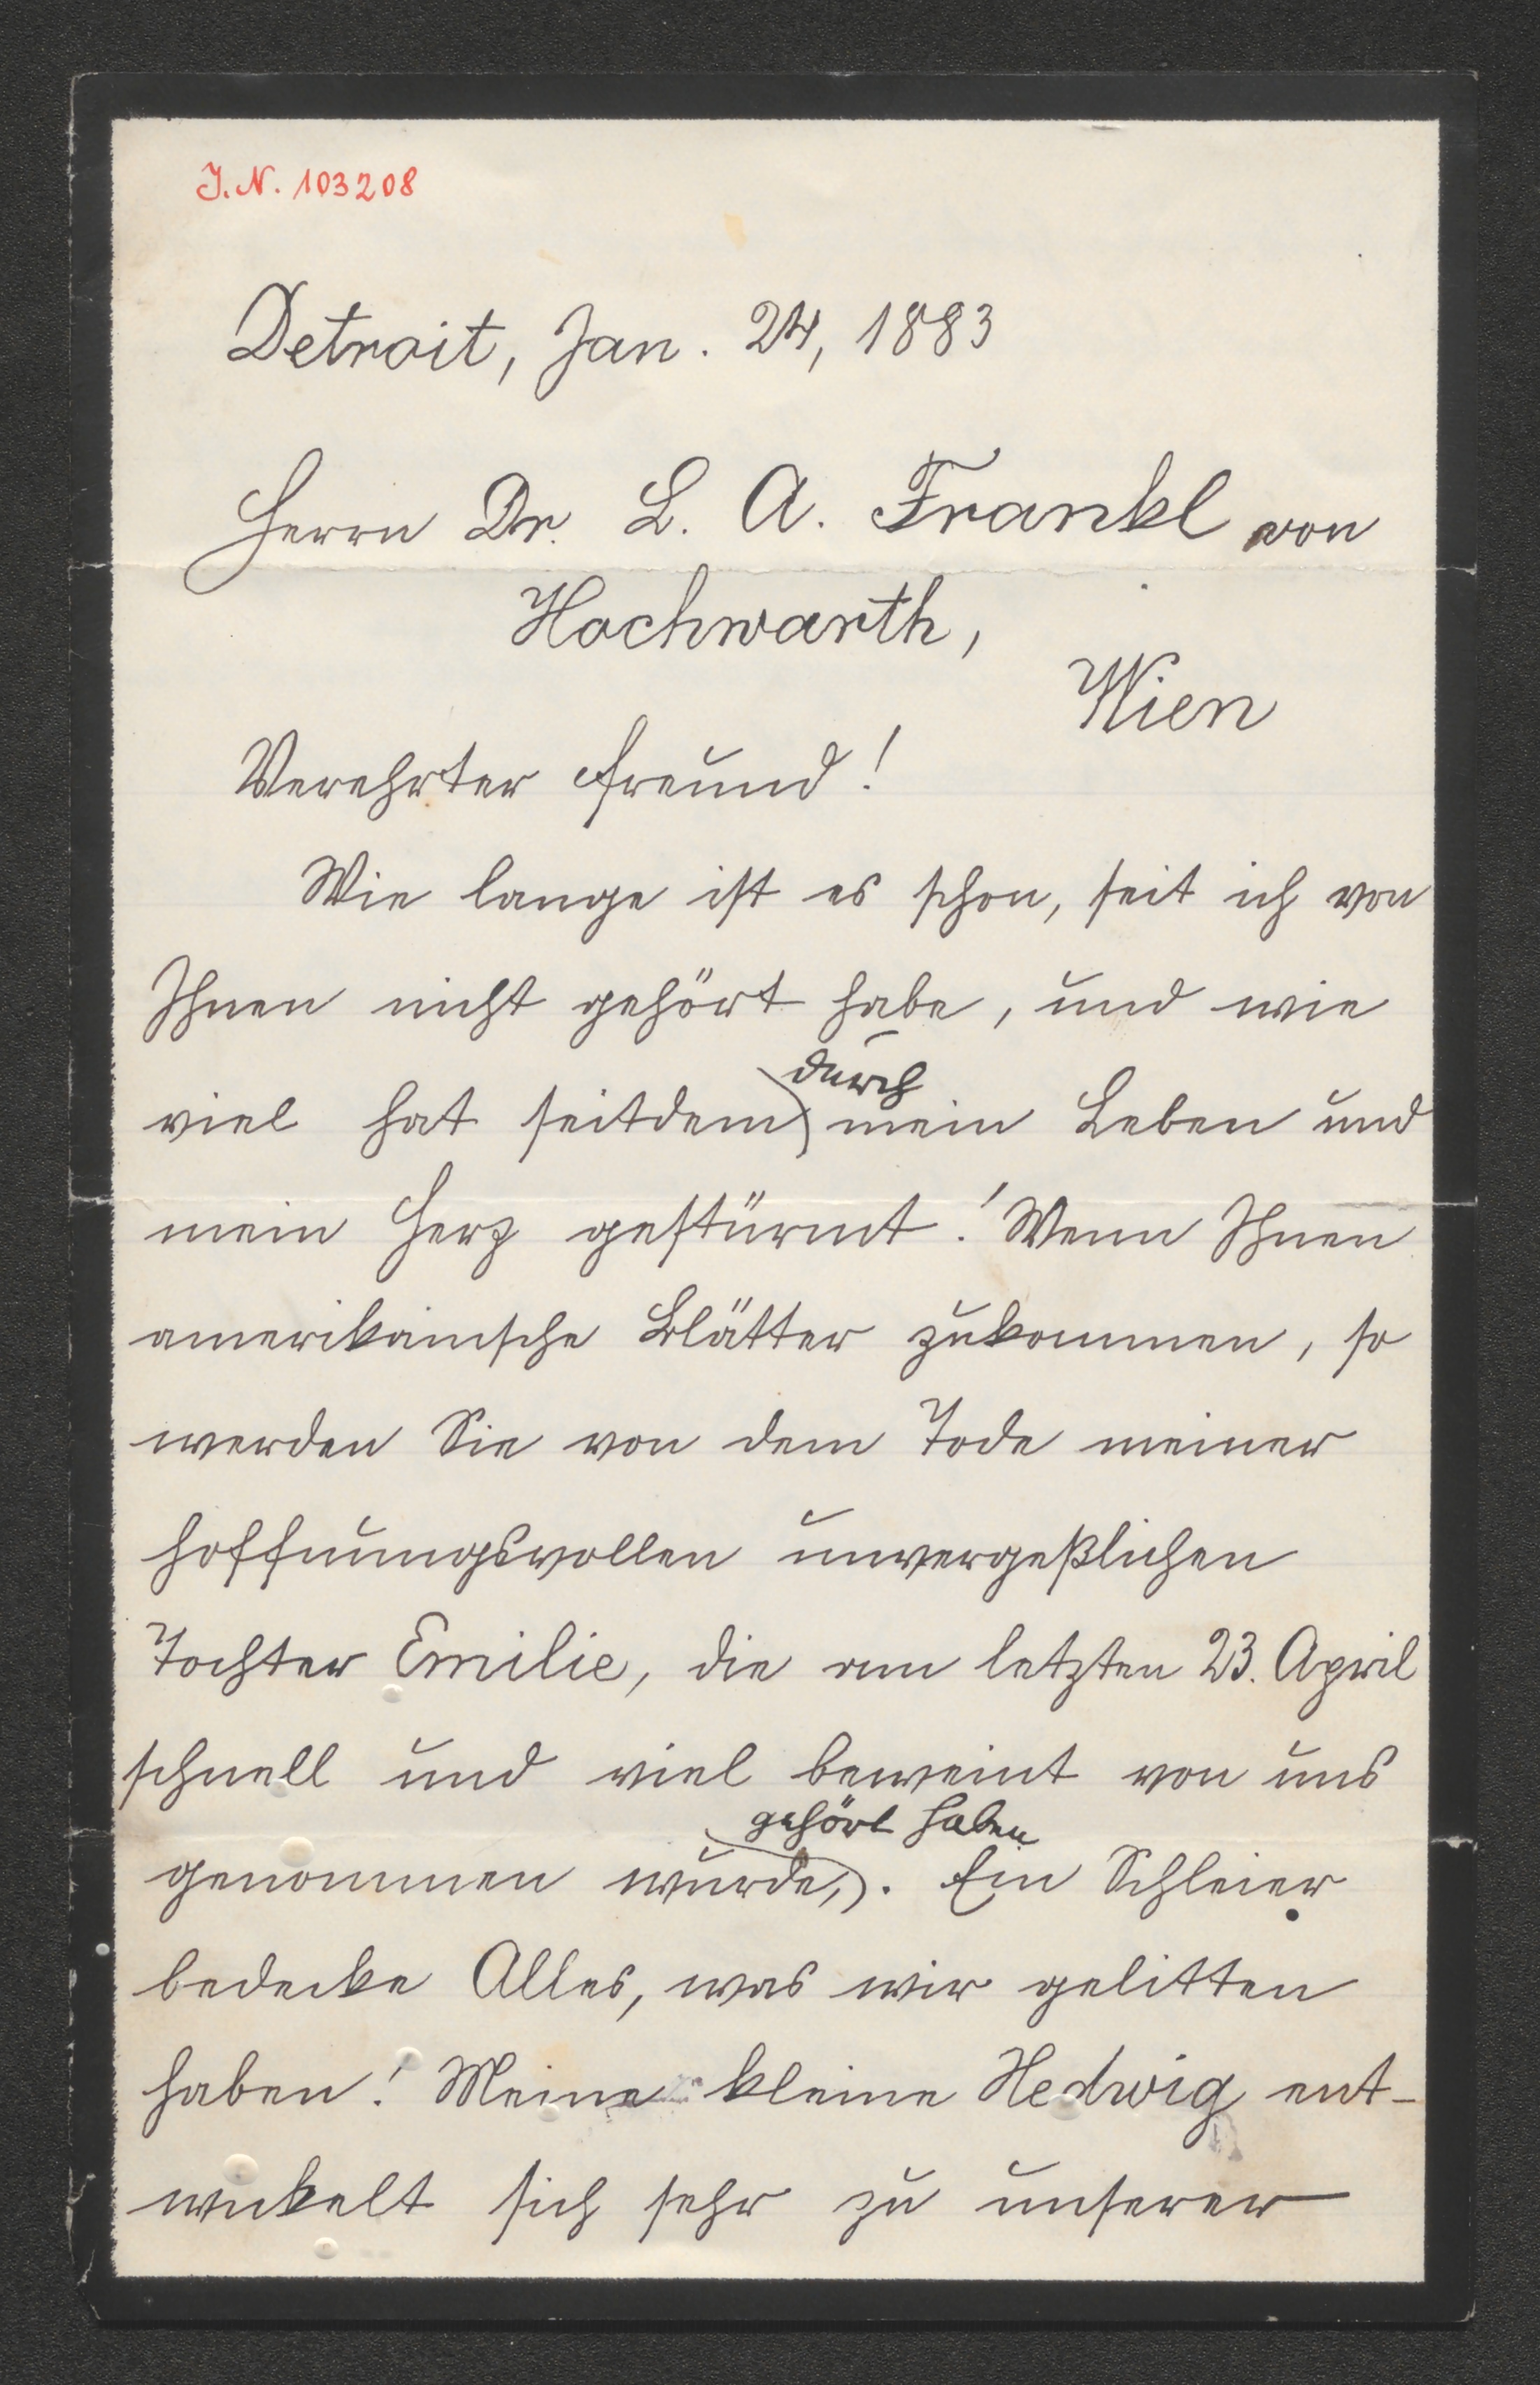 J.N. 103208
Detroit, Jan. 24, 1883
Herrn Dr. L. A. Frankl von
Hochwarth,
Wien
Verehrter Freund!
Wie lange ist es schon, seit ich von
Ihnen nicht gehört habe, und wie
durch
viel hat seitdem mein Leben und
mein Herz gestürmt! Wenn Ihnen
amerikanische Blätter zukommen, so
werden Sie von dem Tode meiner
hoffnungsvollen unvergeßlichen
Tochter Emilie, die am letzten 23. April
schnell und viel beweint von uns
gehört haben
genommen wurde,. Ein Schleier
bedecke Alles, was wir gelitten
haben! Meine kleine Hedwig ent-
wickelt sich sehr zu unserer